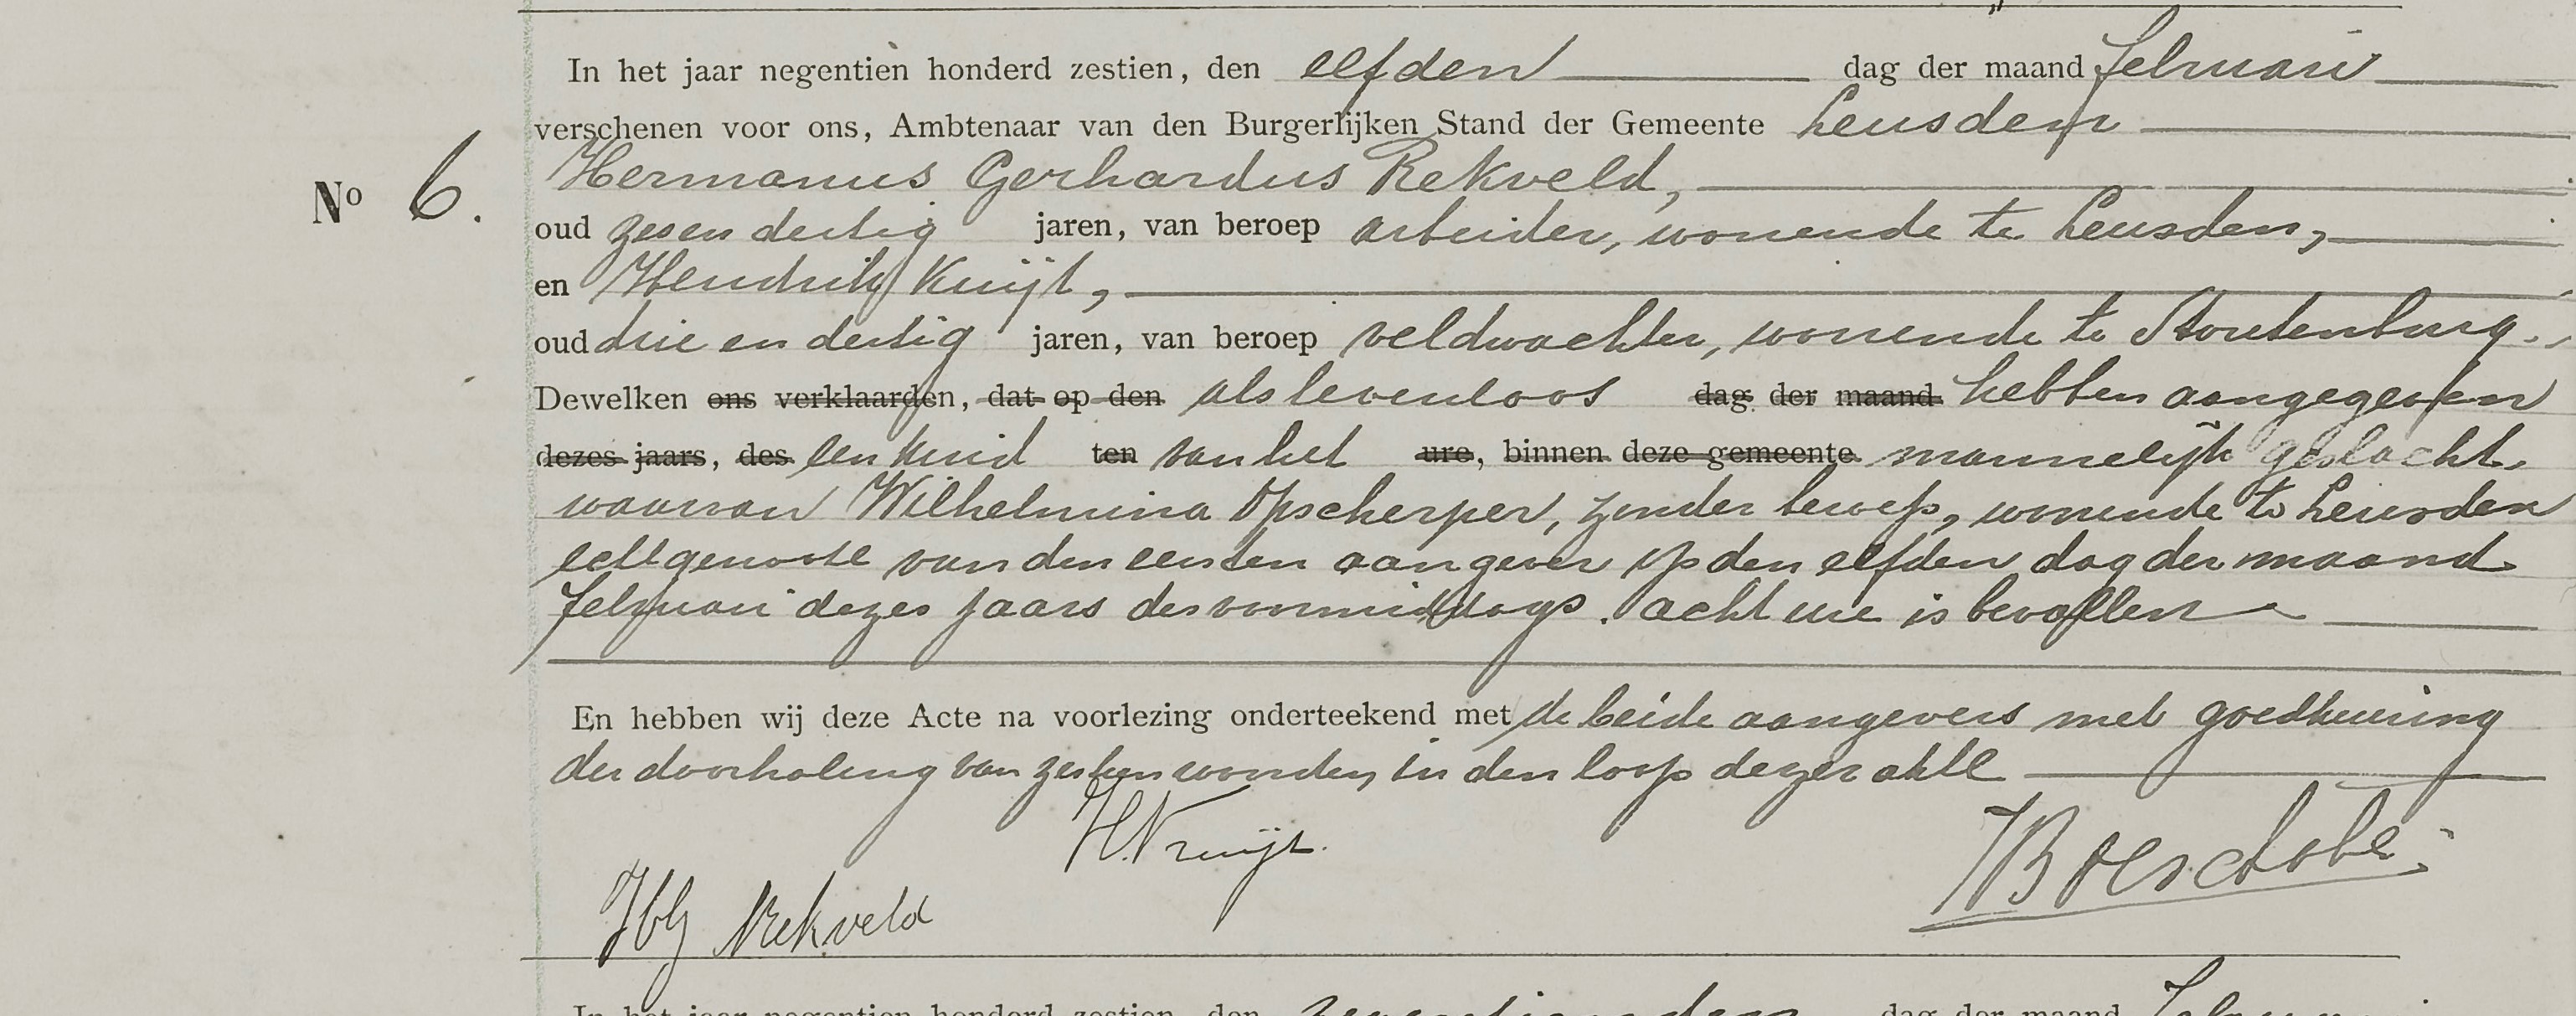 In het jaar negentien honderd zestien, den elfden dag der maand februari
verschenen voor ons, Ambtenaar van den Burgerlijken Stand der Gemeente Leusden
Nº 6. Hermanus Gerhardus Rekveld,
oud zesendertig jaren, van beroep arbeider, wonende te Leusden,
en Hendrik Kuijt,
oud drie en dertig jaren, van beroep veldwachter, wonende te Stoutenburg.
Dewelken ons verklaarden, dat op den als levenloos dag der maand hebben aangegeven
dezes jaars, des een kind ten van het ure, binnen deze gemeente mannelijk geslacht,
waarvan Wilhelmina Opscherper, zonder beroep, wonende te Leusden
echtgenoote van den eersten aangever op den elfden dag der maand
februari dezes jaars des voormiddags. acht ure is bevallen
En hebben wij deze Acte na voorlezing onderteekend met de beide aangevers met goedkeuring
der doorhaling van zestien woorden, in den loop dezer akte
H. Kruijt.
HG Rekveld
In het jaar negentien honderd zestien, den zeventienden dag der maand Februari